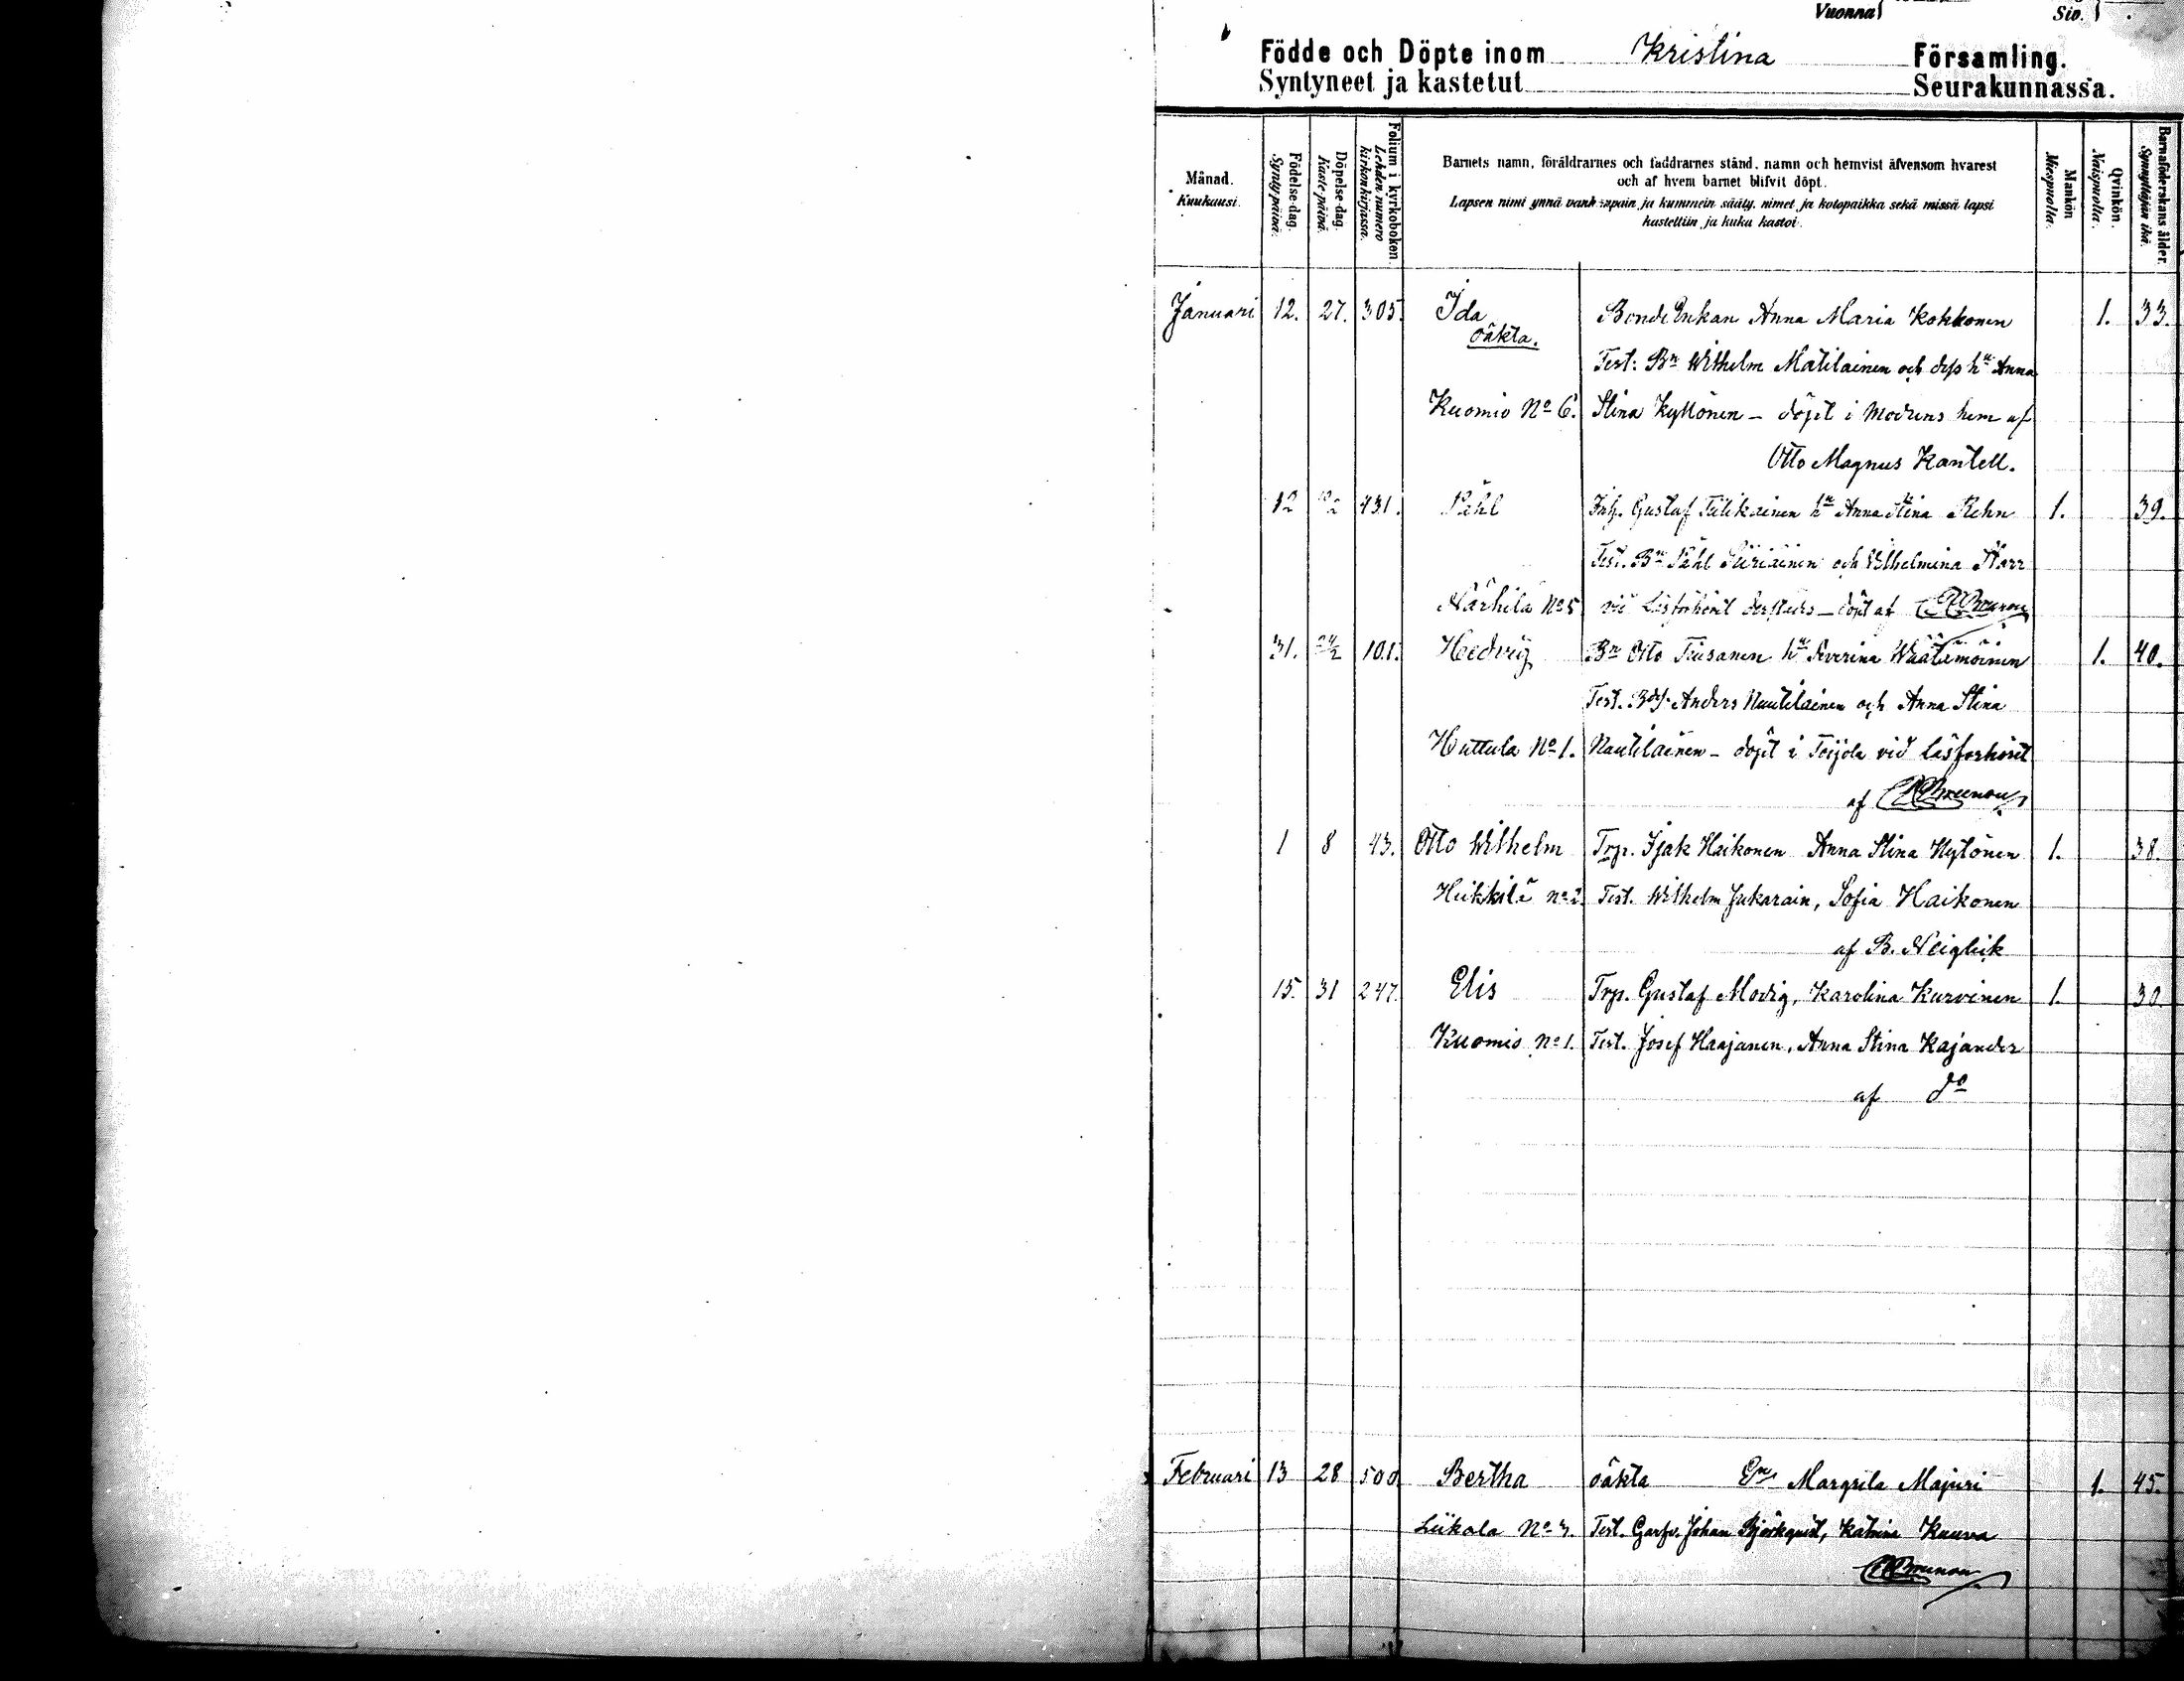 Vuonna Siv.
Födde och Döpte inom Kristina Församling.
Syntyneet ja kastetut Seurakunnassa.
Månad. Kuukausi.
Födelse-dag. Syntypäivä.
Döpelse-dag. Kaste-päivä.
Folium i kyrkoboken. Lehden numero kirkonkirjassa.
Barnets namn, föräldrarnes och faddrarnes stånd, namn och hemvist äfvensom hvarest
och af hvem barnet blifvit döpt.
Lapsen nimi ynnä vanhempain ja kummein sääty, nimet ja kotopaikka sekä missä lapsi
kastettiin ja kuka kastoi.
Mankön Miespuolia.
Qvinkön. Naispuolia.
Barnaföderskans ålder. Synnyttäjän ikä.
Januari 12. 27. 305. Ida Bonde Enkan Anna Maria Kokkonen 1. 33.
oäkta.
Test: Bn Wilhelm Matilainen och dess hu Anna
Kuomio No 6. Stina Kyttönen - döpt i Modrens hem af
Otto Magnus Kantell.
12 431. Påhl Inh. Gustaf Tilikainen hu Anna Stina Rehn 1. 39.
Test. Bn Påhl Siiriäinen och Wilhelmina Starr
Närhilä No 5 vid Läsförhöret - döpt af
31. 24/2 101. Hedvig Bn Otto Tiusanen hu Severina Wäätämöinen 1. 40.
Test. Anders Nuutilainen och Anna Stina
Huttula No 1. Nuutilainen - döpt i Toijola vid läsförhöret
af
1 8 43. Otto Wilhelm Trp. Isak Haikonen Anna Stina Hytönen 1. 38.
Heikkilä No 2. Test. Wilhelm Jukarain, Sofia Haikonen
af B. Neiglick
15. 31 247. Elis Trp. Gustaf Modig, Karolina Kurvinen 1. 30
Kuomio No 1. Test. Josef Haajanen, Anna Stina Kajander
af do
Februari 13 28 500. Bertha oäkta En Margreta Majuri 1. 45.
Liikola No 3. Test. Garfv. Johan Björkqvist, Katrina Kuuva